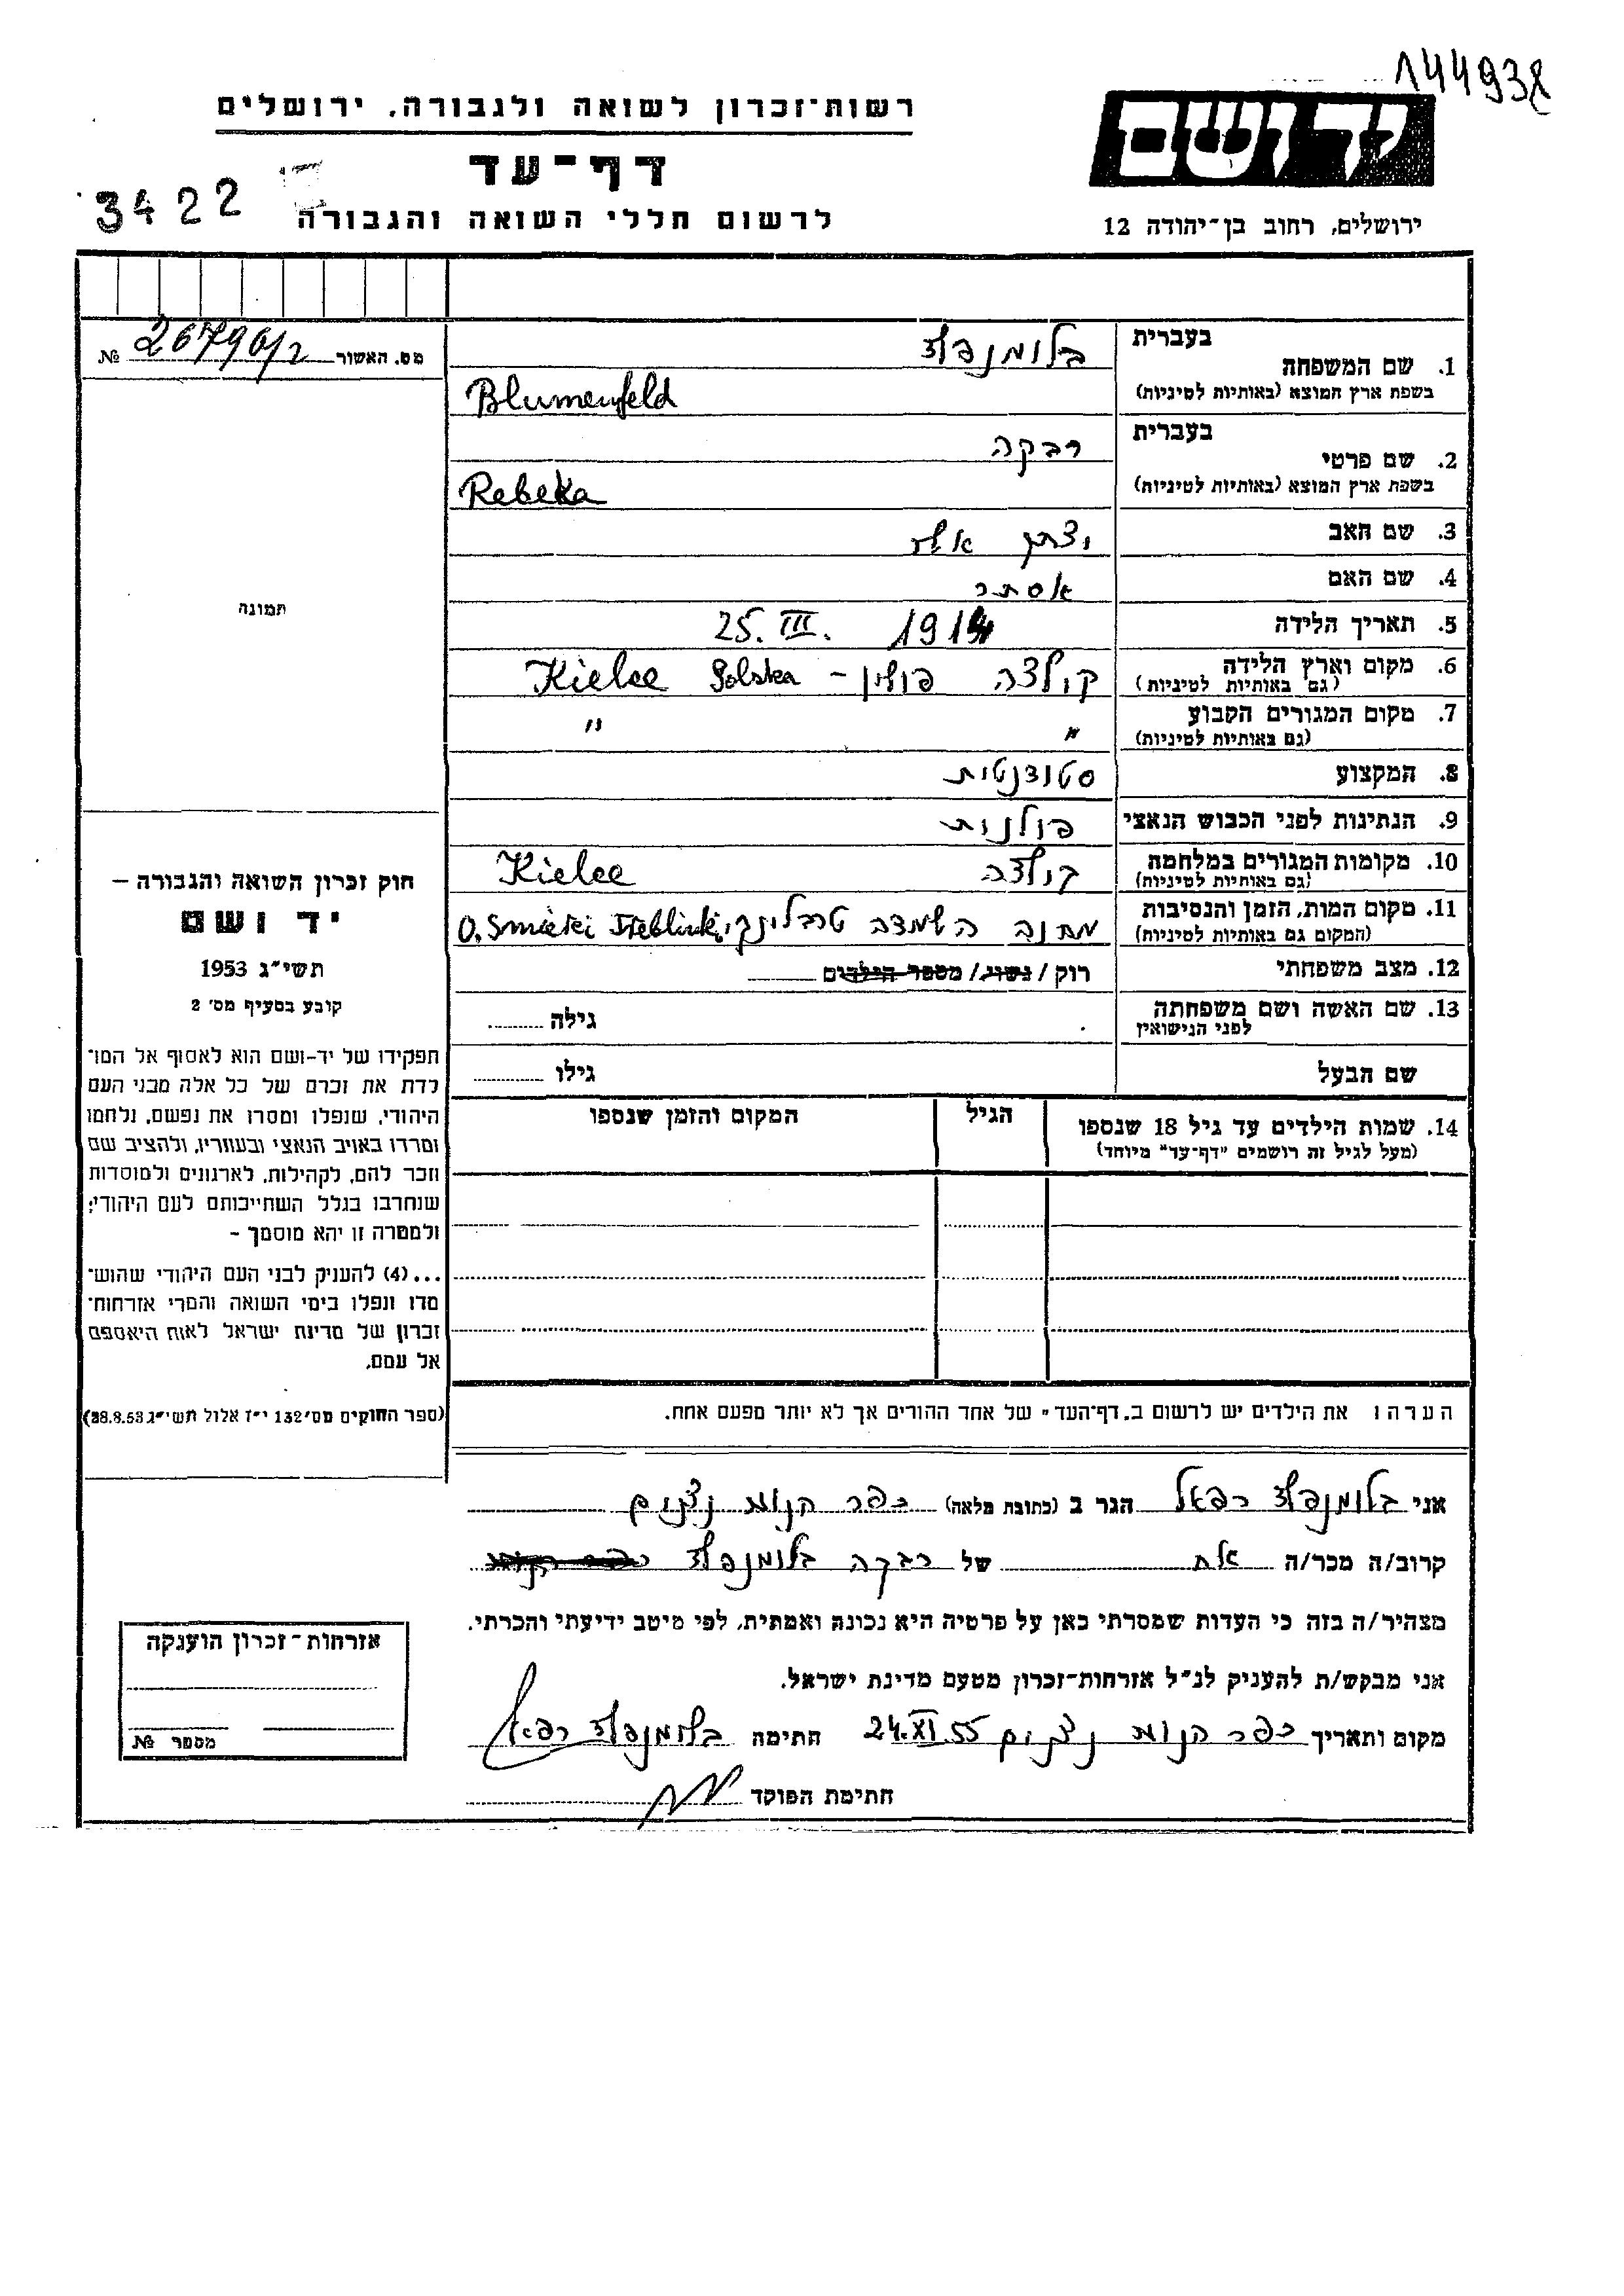 144938
יד ושם
רשות-זכרון לשואה ולגבורה, ירושלים
דף-עד
לרשום חללי השואה והגבורה
3422
ירושלים, רחוב בן-יהודה 12
מס. האשור 26796/2 №
תמונה
חוק זכרון השואה והגבורה –
יד ושם
תשי״ג 1953
קובע בסעיף מס׳ 2
תפקידו של יד-ושם הוא לאסוף אל המו-
לדת את זכרם של כל אלה מבני העם
היהודי, שנפלו ומסרו את נפשם, נלחמו
ומרדו באויב הנאצי ובעוזריו, ולהציב שם
וזכר להם, לקהילות, לארגונים ולמוסדות
שנחרבו בגלל השתייכותם לעם היהודי;
ולמטרה זו יהא מוסמך –
...(4) להעניק לבני העם היהודי שהוש-
מדו ונפלו בימי השואה והמרי אזרחות-
זכרון של מדינת ישראל לאות היאספם
אל עמם.
(ספר החוקים מס׳ 132 י״ז אלול תשי״ג 28.8.53)
1. שם המשפחה בעברית בלומנפלד
בשפת ארץ המוצא (באותיות לטיניות) Blumenfeld
2. שם פרטי בעברית רבקה
בשפת ארץ המוצא (באותיות לטיניות) Rebeka
3. שם האב
4. שם האם אסתר
5. תאריך הלידה 25. III. 1914
6. מקום וארץ הלידה קילצה פולין – Kielce Polska
(גם באותיות לטיניות)
7. מקום המגורים הקבוע " "
(גם באותיות לטיניות)
8. המקצוע סטודנטית
9. הנתינות לפני הכבוש הנאצי פולנית
10. מקומות המגורים במלחמה קילצה Kielce
(גם באותיות לטיניות)
11. מקום המות, הזמן והנסיבות מחנה השמדה טרבלינקי, O. Smierci Treblinki
(המקום גם באותיות לטיניות)
12. מצב משפחתי רוק / נשוי / מספר הילדים
13. שם האשה ושם משפחתה גילה
לפני הנישואין
שם הבעל גילו
14. שמות הילדים עד גיל 18 שנספו הגיל המקום והזמן שנספו
(מעל לגיל זה רושמים "דף-עד" מיוחד)
הערה: את הילדים יש לרשום ב"דף-העד" של אחד ההורים אך לא יותר מפעם אחת.
אני בלומנפלד רפאל הגר ב (כתובת מלאה) כפר הנוער ניצנים
קרוב/ה מכר/ה אח של רבקה בלומנפלד
מצהיר/ה בזה כי העדות שמסרתי כאן על פרטיה היא נכונה ואמתית, לפי מיטב ידיעתי והכרתי.
אני מבקש/ת להעניק לנ״ל אזרחות-זכרון מטעם מדינת ישראל.
מקום ותאריך כפר הנוער ניצנים 24.XI.55 חתימה בלומנפלד רפאל
חתימת הפוקד
אזרחות-זכרון הוענקה
מספר №